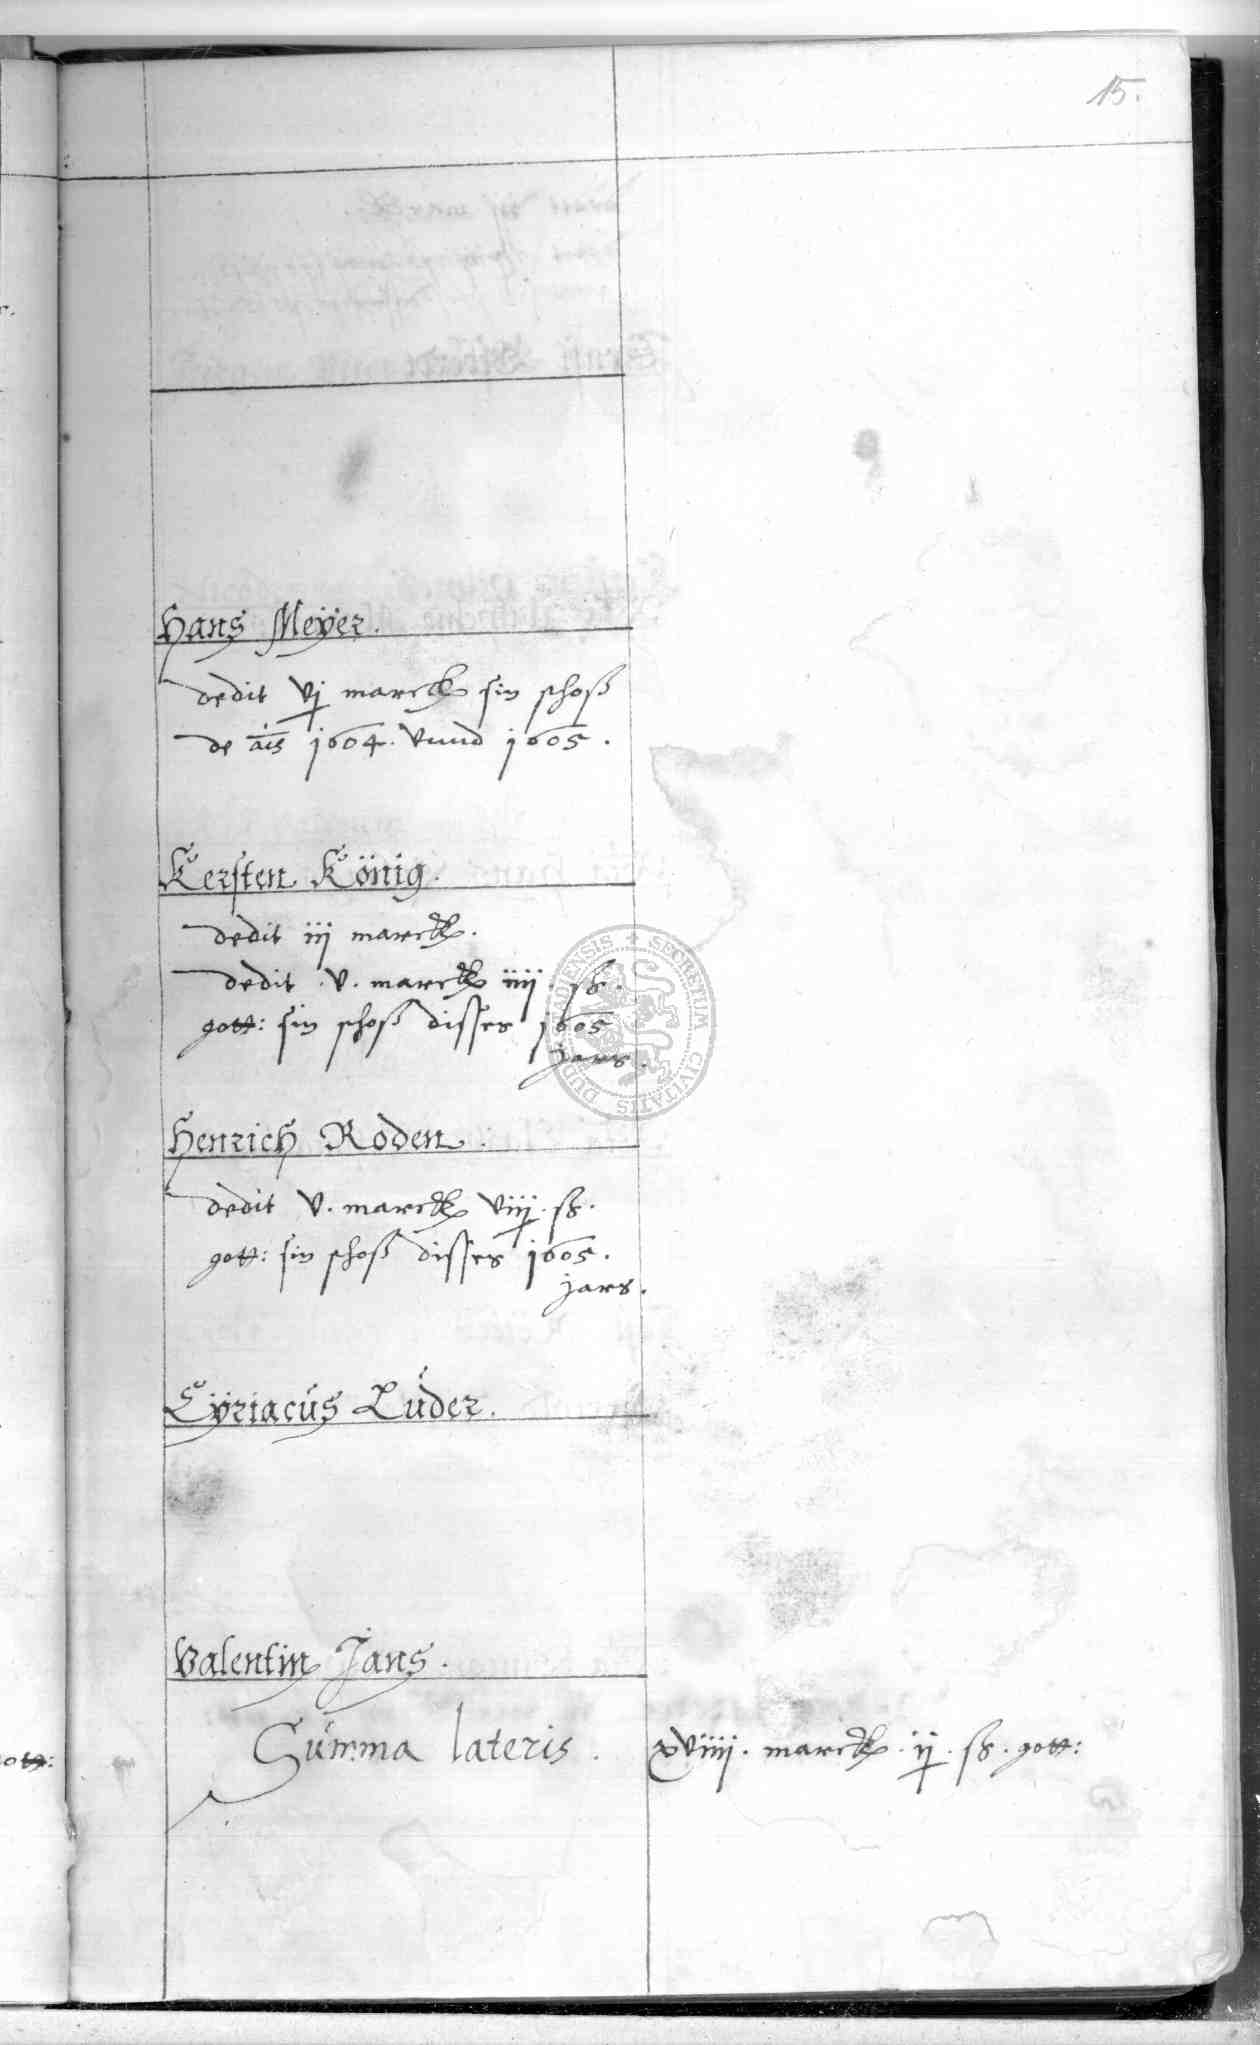 15.
Hans Meÿer.
dedit vj marck sin schoß
de ais 1604. vnnd 1605.
Kersten König.
dedit iij marck.
dedit . v. marck iiij. ß.
gott: sin schoß disses 1605
jars.
Henrich Roden.
dedit v. marck viiij. ß.
gott: sin schoß disses 1605.
jars.
Cÿriacus Lüder.
Valentin Jans.
Summa lateris. xviiij. marck. ij. ß. gott:
SECRETUM CIVITATIS DUDERSTADIENSIS